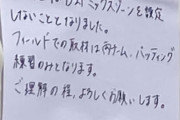 ミックスゾーンを設定
しないこととなりました。
フィールドでの取材は両チーム、バッティング
練習のみとなります。
ご理解の程、よろしくお願いします。